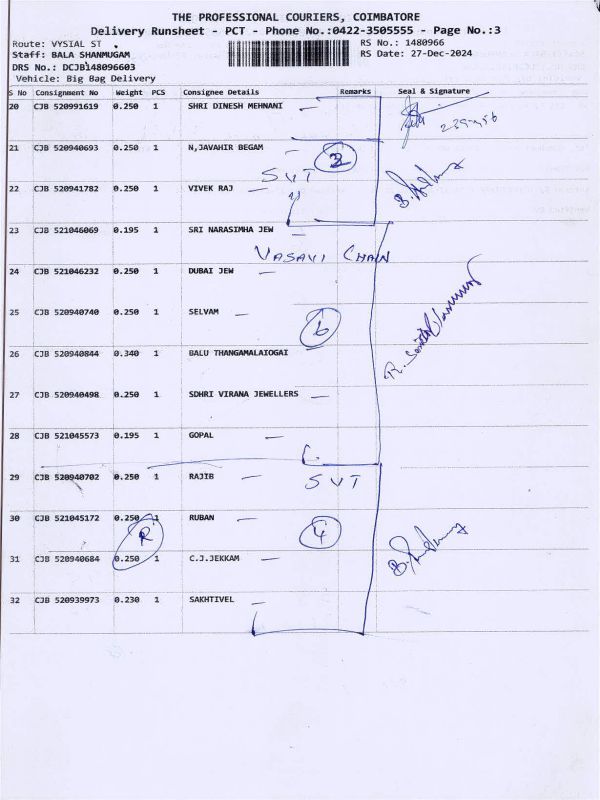 THE PROFESSIONAL COURIERS, COIMBATORE
Delivery Runsheet - PCT - Phone No.:0422-3505555 - Page No.:3
Route: VYSIAL ST RS No.: 1480966
Staff: BALA SHANMUGAM RS Date: 27-Dec-2024
DRS No.: DCJB148096603
Vehicle: Big Bag Delivery
S No Consignment No Weight PCS Consignee Details Remarks Seal & Signature
20 CJB 520991619 0.250 1 SHRI DINESH MEHNANI
21 CJB 520940693 0.250 1 N,JAVAHIR BEGAM
SVT
22 CJB 520941782 0.250 1 VIVEK RAJ
23 CJB 521046069 0.195 1 SRI NARASIMHA JEW
VASAVI CHAIN
24 CJB 521046232 0.250 1 DUBAI JEW
25 CJB 520940740 0.250 1 SELVAM
6
26 CJB 520940844 0.340 1 BALU THANGAMALAIOGAI
27 CJB 520940498 0.250 1 SDHRI VIRANA JEWELLERS
28 CJB 521045573 0.195 1 GOPAL
29 CJB 520940702 0.250 1 RAJIB
SVT
30 CJB 521045172 0.250 1 RUBAN
R 4
31 CJB 520940684 0.250 1 C.J.JEKKAM
32 CJB 520939973 0.230 1 SAKHTIVEL